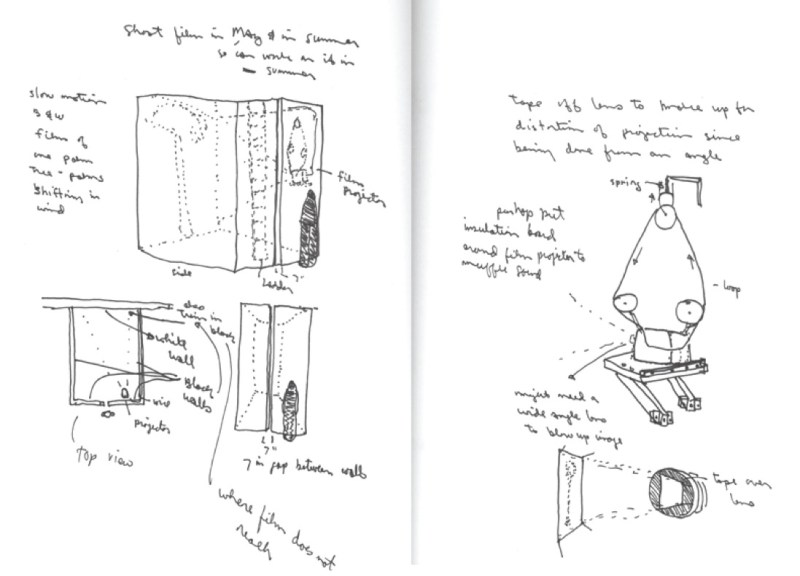 Short film in May & in summer
so can work on it in
summer
slow motion
B & W
films of
one palm
tree - palms
shifting in
wind
film
projector
side
ladder
7"
also
train in
black
white
wall
Black
walls
projector
top view
7"
7 in gap between walls
where film does not
reach
tape off lens to make up for
distortion of projection since
being done from an angle
spring
perhap put
insulation board
around film projector to
muffle sound
loop
might need a
wide angle lens
to blow up image
tape over
lens